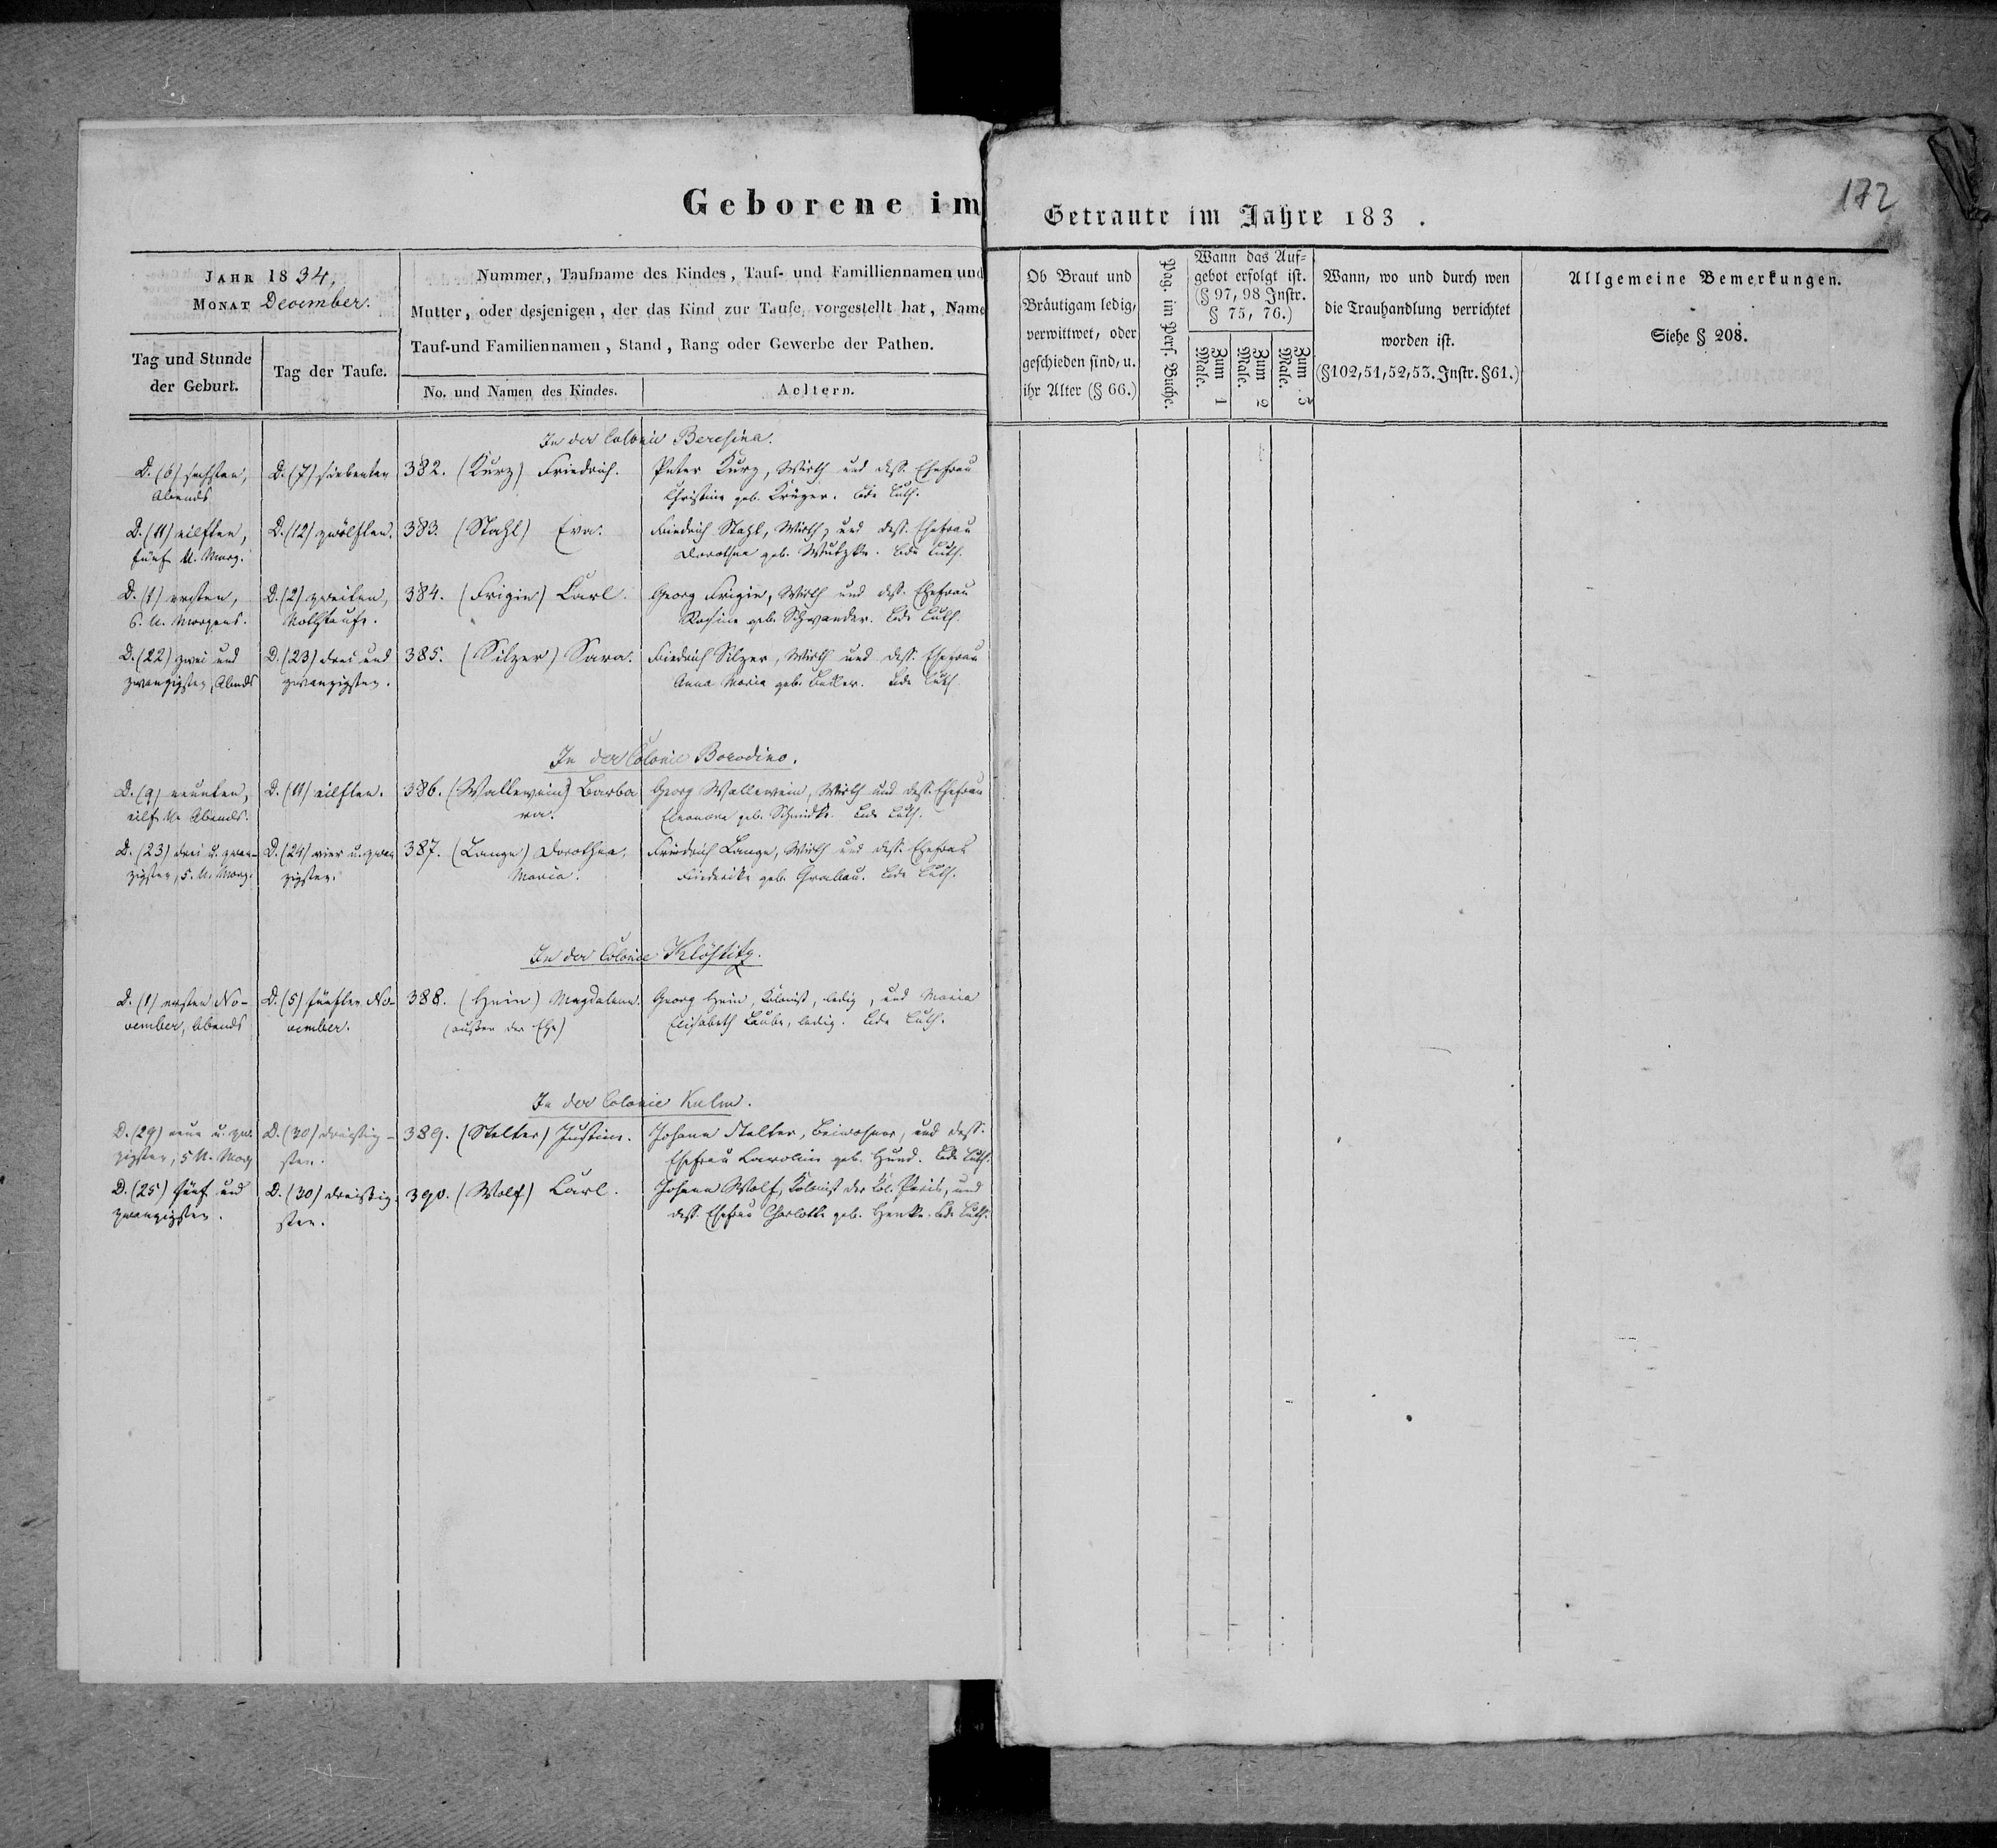 Geborene im
JAHR 1834,
MONAT December.
Nummer, Taufname des Kindes, Tauf- und Familliennamen und
Mutter, oder desjenigen, der das Kind zur Taufe, vorgestellt hat, Name
Tauf-und Familiennamen, Stand, Rang oder Gewerbe der Pathen.
Tag und Stunde
der Geburt.
Tag der Taufe.
No. und Namen des Kindes.
Aeltern.
In der Colonie Beresina.
D. (6) sechsten,
Abends
D. (7) siebenten
382. (Kurz) Friedrich.
Peter Kurz, Wirth und dess. Ehefrau
Christine geb. Krüger. Bde Luth.
D. (11) eilften,
fünf U. Morg.
D. (12) zwölften.
383. (Stahl) Eva.
Friedrich Stahl, Wirth, und dess. Ehefrau
Dorothea geb. Mutzke. Bde Luth.
D. (1) ersten,
6. U. Morgens.
D. (2) zweiten,
Nothtaufe.
384. (Frigin) Carl.
Georg Frigin, Wirth und dess. Ehefrau
Rosine geb. Schwander. Bde Luth.
D. (22) zwei und
zwanzigsten, Abends
D. (23) drei und
zwanzigsten.
385. (Silzer) Sara.
Friedrich Silzer, Wirth und dess. Ehefrau
Anna Maria geb. Bede Luth.
In der Colonie Borodino.
D. (9) neunten,
eilf U. Abends.
D. (11) eilften.
386. (Wallewein) Barba
ra.
Georg Wallewein, Wirth und dess. Ehefrau
Eleonore geb. Schmidke. Bde Luth.
D. (23) drei u. zwan-
zigsten, 5. U. Morg.
D. (24) vier u. zwan
zigsten.
387. (Lange) Dorothea,
Maria.
Friedrich Lange, Wirth und dess. Ehefrau
Friederike geb. Grabau. Bde Luth.
In der Colonie Klöstitz.
D. (1) ersten No-
vember, Abends
D. (5) fünften No-
vember.
388. (Hein) Magdalena.
(außer der Ehe)
Georg Hein, Kolonist, ledig, und Maria
Elisabeth Laube, ledig. Bde Luth.
In der Colonie Kulm.
D. (29) neun u. zwa
zigsten, 5 U. Morg
D. (30) dreißig-
sten.
389. (Stelter) Justine.
Johann Stelter, Beiwohner, und dess.
Ehefrau Caroline geb. Hund. Bde Luth.
D. (25) fünf und
zwanzigsten.
D. (30) dreißig-
sten.
390. (Wolf) Carl.
Johann Wolf, Kolonist der Col. Paris, und
dess. Ehefrau Charlotte geb. Henke. Bde Luth.
172
Getraute im Jahre 183 .
Ob Braut und
Bräutigam ledig,
verwittwet, oder
geschieden sind, u.
ihr Alter (§ 66.)
Pag. im Pers. Buche.
Wann das Auf-
gebot erfolgt ist.
(§ 97, 98 Instr.
§ 75, 76.)
Zum 1
Male.
Zum 2
Male.
Zum 3
Male.
Wann, wo und durch wen
die Trauhandlung verrichtet
worden ist.
(§102,51,52,53. Instr. §61.)
Allgemeine Bemerkungen.
Siehe § 208.